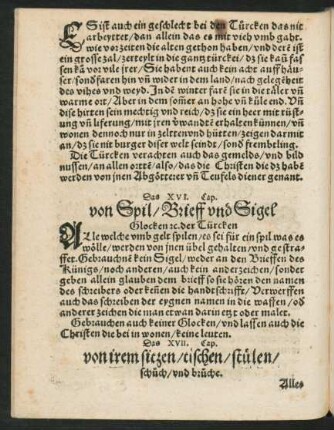 ES ist auch ein geschlecht bei den Türcken das nit
arbeyttet/dan allein das es mit vich vmb gaht.
wie vor zeiten die alten gethon haben/vnd derē ist
ein grosse zal/zerteylt in die gantz türckei/dz sie kaū fas
sen kā vor vile jrer/Sie habent auch kein acht auff häu-
ser/sondaren hin vn wider in dem land/nach gelegēheit
des vihes vnd weyd. In dē winter farē sie in die täler vn
warme ort/Aber in dem somer an hohe vn küle end. Vn
dise hirten sein mechtig vnd reich/dz sie ein heer mit rüst-
ung vn liferung/mit jren vwandtē erhalten künnen/vn
wonen dennoch nur in zelten vnd hütten/zeigen darmit
an/dz sie nit burger diser welt seindt/sond frembtling.
Die Türcken verachten auch das gemelds/vnd bild
nussen/an allen ortē/also/das die Christen die dz habē
werden von jnen Abgötterer vn Teufels diener genant.
Das XVI. Cap.
von Spil/Brieff vnd Sigel
Glocken ꝛc. der Türcken
ALle welche vmb gelt spilen/es sei für ein spil was es
wölle/werden von jnen übel gehalten/vnd gestra
ffet. Gebrauchnē kein Sigel/weder an den Brieffen des
Künigs/noch anderen/auch kein anderzeichen/sonder
geben allein glauben dem brieff so sie hören den namen
des schreibers oder künen die handtschrifft/Verwerffen
auch das schreiben der eygnen namen in die waffen/od
anderer zeichen die man etwan darin etzt oder malet.
Gebrauchen auch keiner Glocken/vnd lassen auch die
Christen die bei in wonen/keine leuten.
Das XVII. Cap.
von irem sitzen/tischen/stülen/
schůch/vnd brüche.
Alles